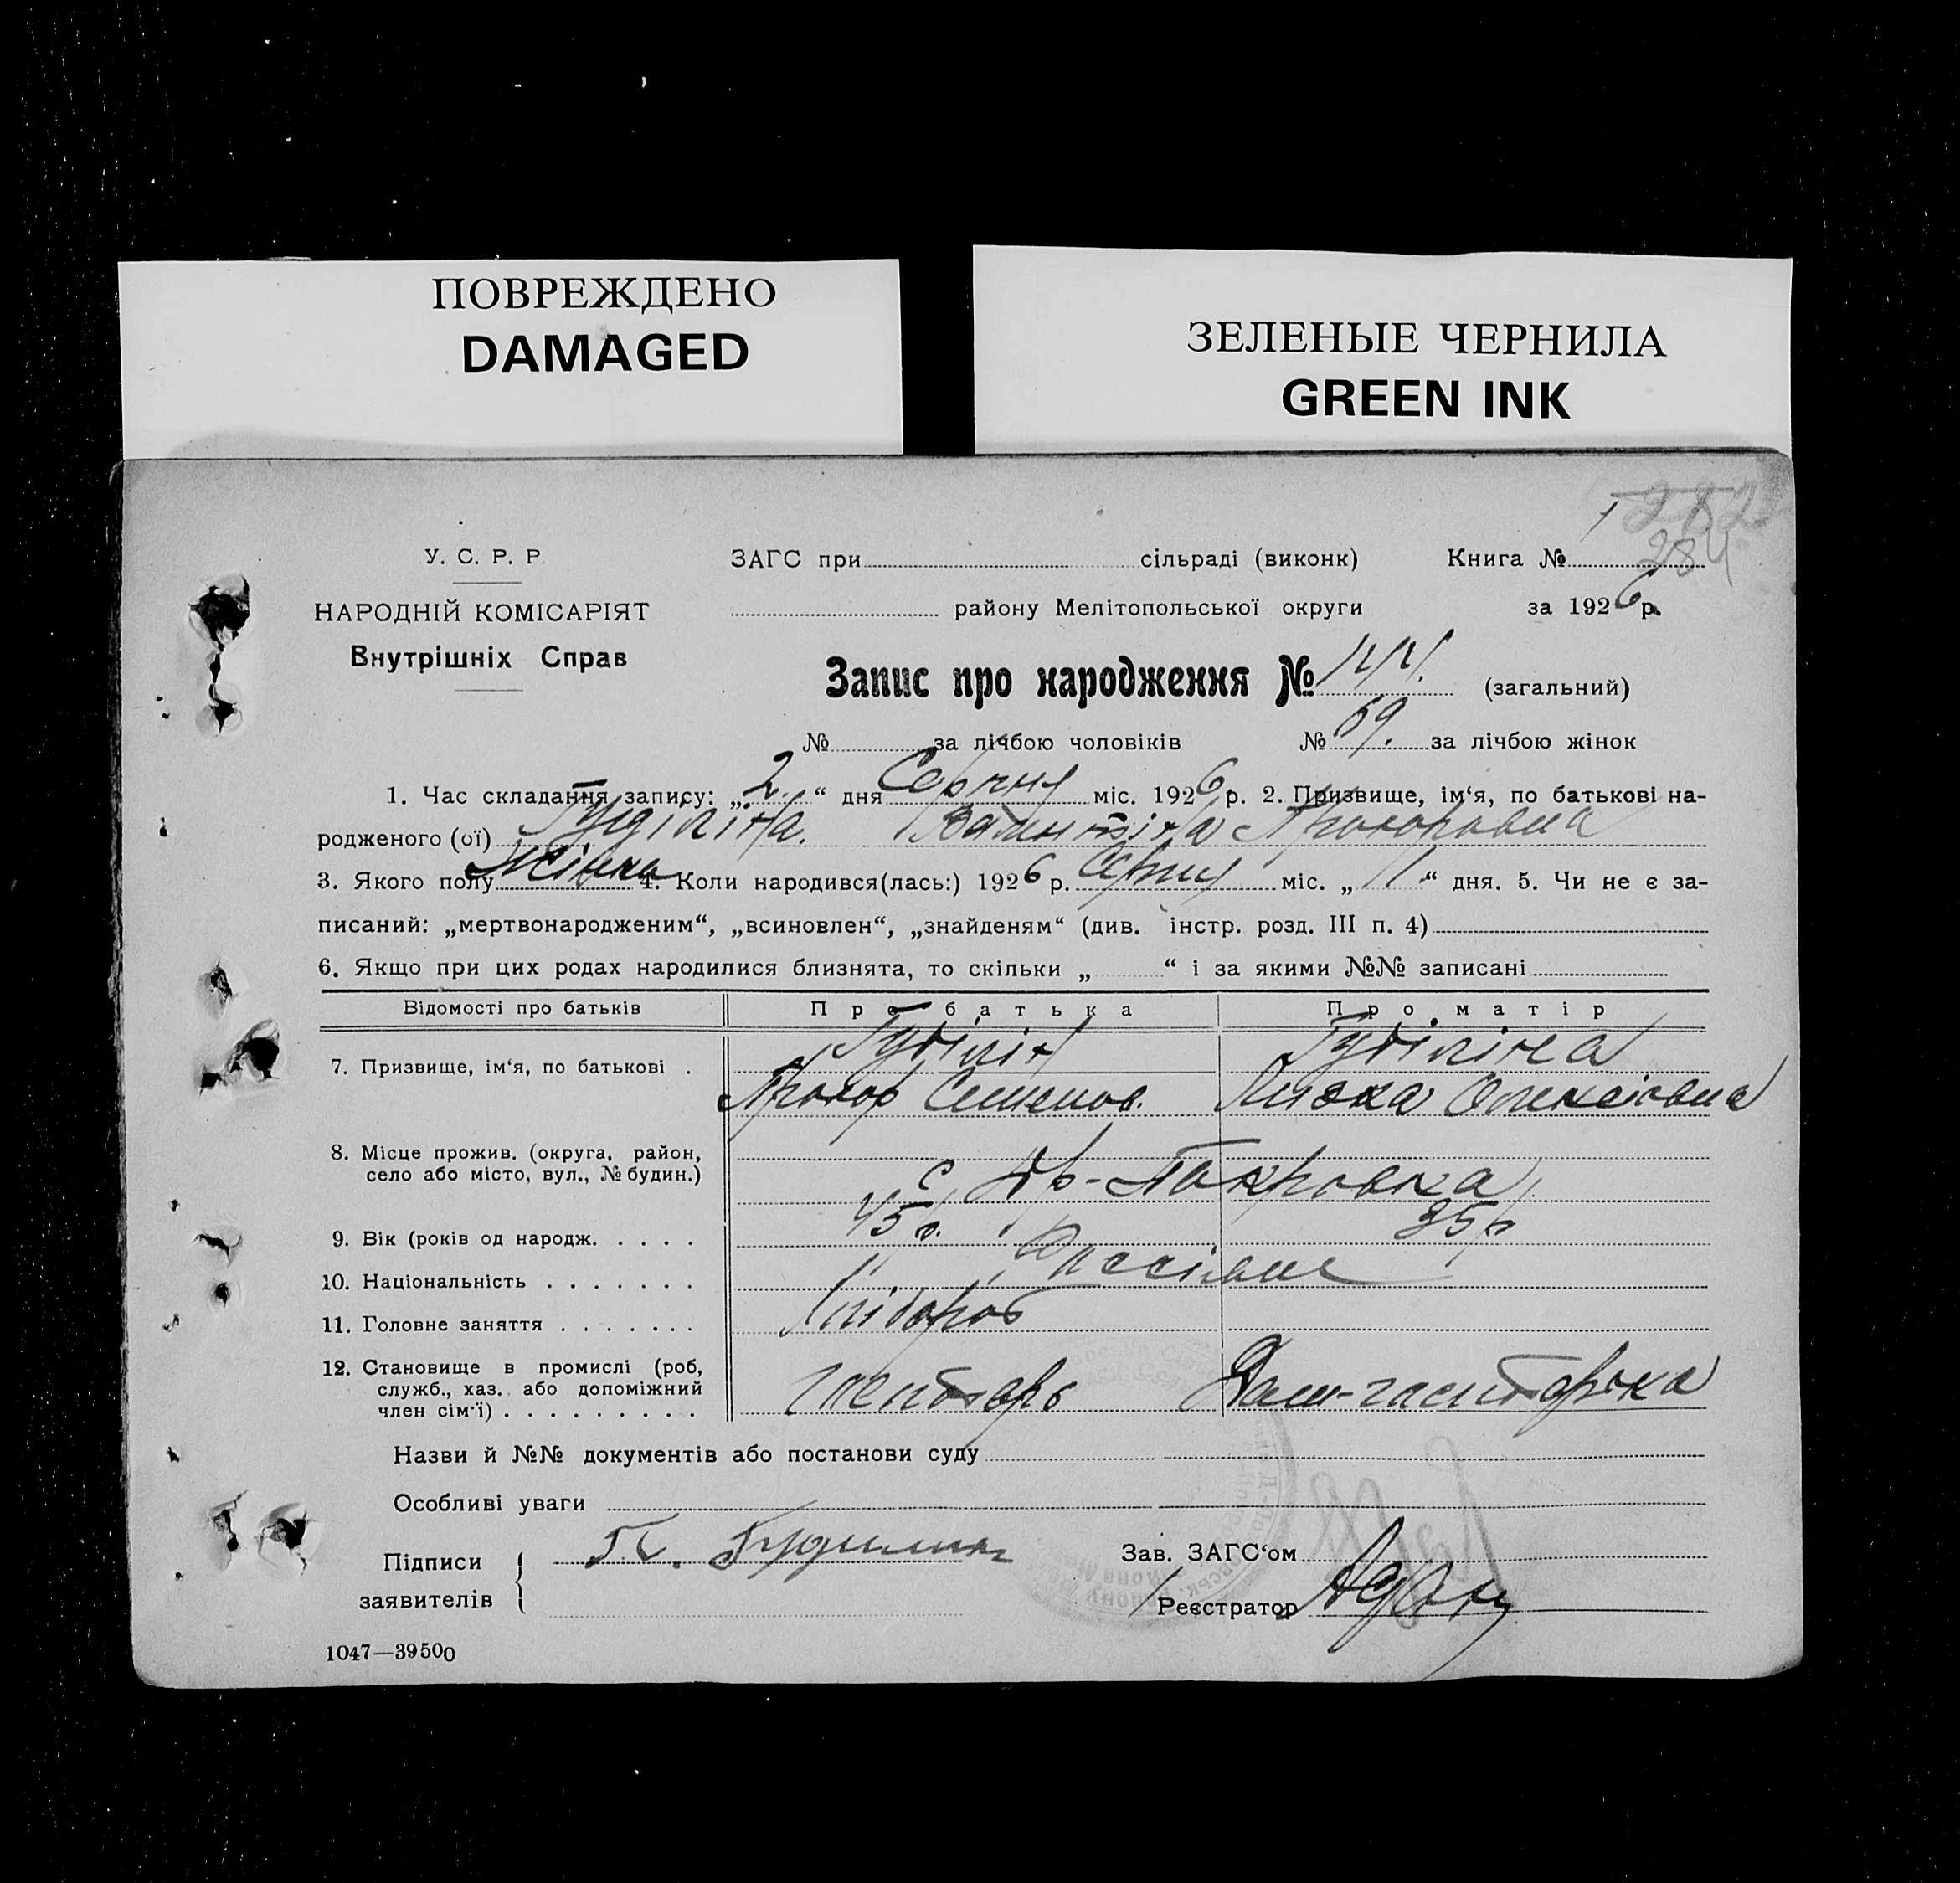 ПОВРЕЖДЕНО
DAMAGED
ЗЕЛЕНЫЕ ЧЕРНИЛА
GREEN INK
282
284
У. С. Р. Р.
НАРОДНІЙ КОМІСАРІЯТ
Внутрішніх Справ
ЗАГС при сільраді (виконк) Книга №
району Мелітопольської округи за 1926 р.
Запис про народження № (загальний)
№ за лічбою чоловіків № 69. за лічбою жінок
1. Час складання запису: „2.“ дня Серпня міс. 1926 р. 2. Призвище, ім'я, по батькові на-
родженого (ої) Гуділіна. Валинтіна Прохоровна
3. Якого полу Жінка 4. Коли народився(лась:) 1926 р. Серпня міс. „1“ дня. 5. Чи не є за-
писаний: „мертвонародженим“, „всиновлен“, „знайденям“ (див. інстр. розд. III п. 4)
6. Якщо при цих родах народилися близнята, то скільки „ “ і за якими №№ записані
Відомості про батьків Про батька Про матір
7. Призвище, ім'я, по батькові . Гуділін Гуділіна
Прохор Семенов. Олексіовна
8. Місце прожив. (округа, район,
село або місто, вул., № будин.) с Покровка
9. Вік (років од народж. . . . . 45 р. 35 р
10. Національність . . . . . . .
11. Головне заняття . . . . . . . Хлібороб
12. Становище в промислі (роб,
служб., хаз. або допоміжний
член сім'ї) . . . . . . . . .
Назви й №№ документів або постанови суду
Особливі уваги
Підписи
заявителів
П. С. Гудилин
Зав. ЗАГС'ом
Реєстратор
1047—39500